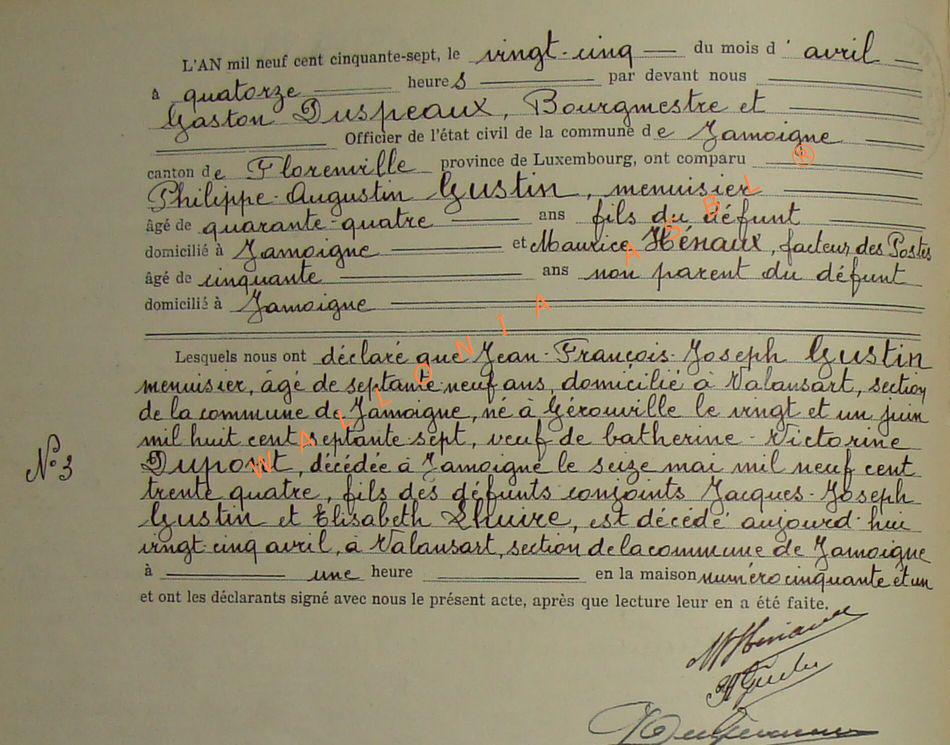 L'AN mil neuf cent cinquante-sept, le vingt-cinq du mois d'avril
à quatorze heures par devant nous
Gaston Duspeaux, Bourgmestre et
Officier de l'état civil de la commune de Jamoigne
canton de Florenville province de Luxembourg, ont comparu
Philippe-Augustin Gustin, menuisier
âgé de quarante-quatre ans fils du défunt
domicilié à Jamoigne et Maurice Hénaux, facteur des Postes
âgé de cinquante ans non parent du défunt
domicilié à Jamoigne
Lesquels nous ont déclaré que Jean-François-Joseph Gustin
menuisier, âgé de septante-neuf ans, domicilié à Valansart, section
de la commune de Jamoigne, né à Gérouville le vingt et un juin
mil huit cent septante-sept, veuf de Catherine-Victorine
N° 3
Dupont, décédée à Jamoigne le seize mai mil neuf cent
trente quatre, fils des défunts conjoints Jacques-Joseph
Gustin et Elisabeth Lhuire, est décédé aujourd'hui
vingt-cinq avril, à Valansart, section de la commune de Jamoigne
à une heure en la maison numéro cinquante et un
et ont les déclarants signé avec nous le présent acte, après que lecture leur en a été faite.
WALLONIA ASBL ®